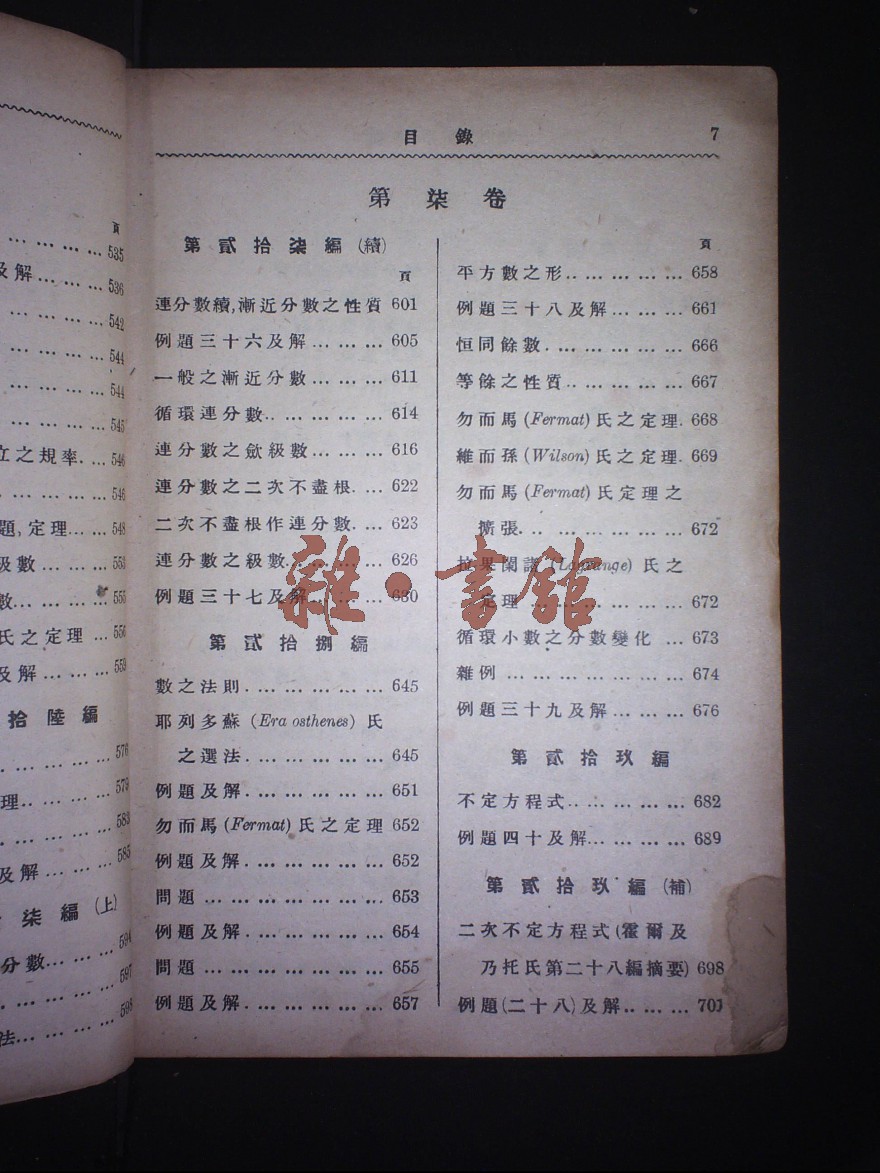 頁
535
及解… … … 536
… … … 542
… … … 544
… … … 544
… … … 545
立之規率. … 546
… … … 546
題,定理… … 548
級數… … … 553
數… … … … 555
氏之定理 … 556
及解… … … 559
拾陸編
… … … 576
理.. … … … 579
… … … 583
及解… … … 585
柒編(上)
分數… … … 594
… … … 597
… … … 598
法… … …
目錄 7
第柒卷
第貳拾柒編(續)
頁
連分數續,漸近分數之性質 601
例題三十六及解… … … … 605
一般之漸近分數… … … … 611
循環連分數.. … … … … … 614
連分數之斂級數… … … … 616
連分數之二次不盡根. … … 622
二次不盡根作連分數. … … 623
連分數之級數… … … … … 626
例題三十七及解… … … … 630
第貳拾捌編
數之法則 . … … … … … … 645
耶列多蘇 (Era osthenes) 氏
之選法 . … … … … … … 645
例題及解 . … … … … … … 651
勿而馬 (Fermat) 氏之定理 652
例題及解 . … … … … … … 652
問題 … … … … … … … … 653
例題及解 . … … … … … … 654
問題 … … … … … … … … 655
例題及解 . … … … … … … 657
頁
平方數之形 .. … … … … … 658
例題三十八及解… … … … 661
恒同餘數 . … … … … … … 666
等餘之性質 .. … … … … … 667
勿而馬 (Fermat) 氏之定理. 668
維而孫 (Wilson) 氏之定理. 669
勿而馬 (Fermat) 氏定理之
擴張. … … … … … … … 672
拉果閑諸 (Lagrange) 氏之
定理 … … … … … … … 672
循環小數之分數變化 … 673
雜例 … … … … … … … … 674
例題三十九及解… … … … 676
第貳拾玖編
不定方程式 .. … … … … … 682
例題四十及解… … … … … 689
第貳拾玖編(補)
二次不定方程式(霍爾及
乃托氏第二十八編摘要) 698
例題(二十八)及解.. … … … 701
雜·書館